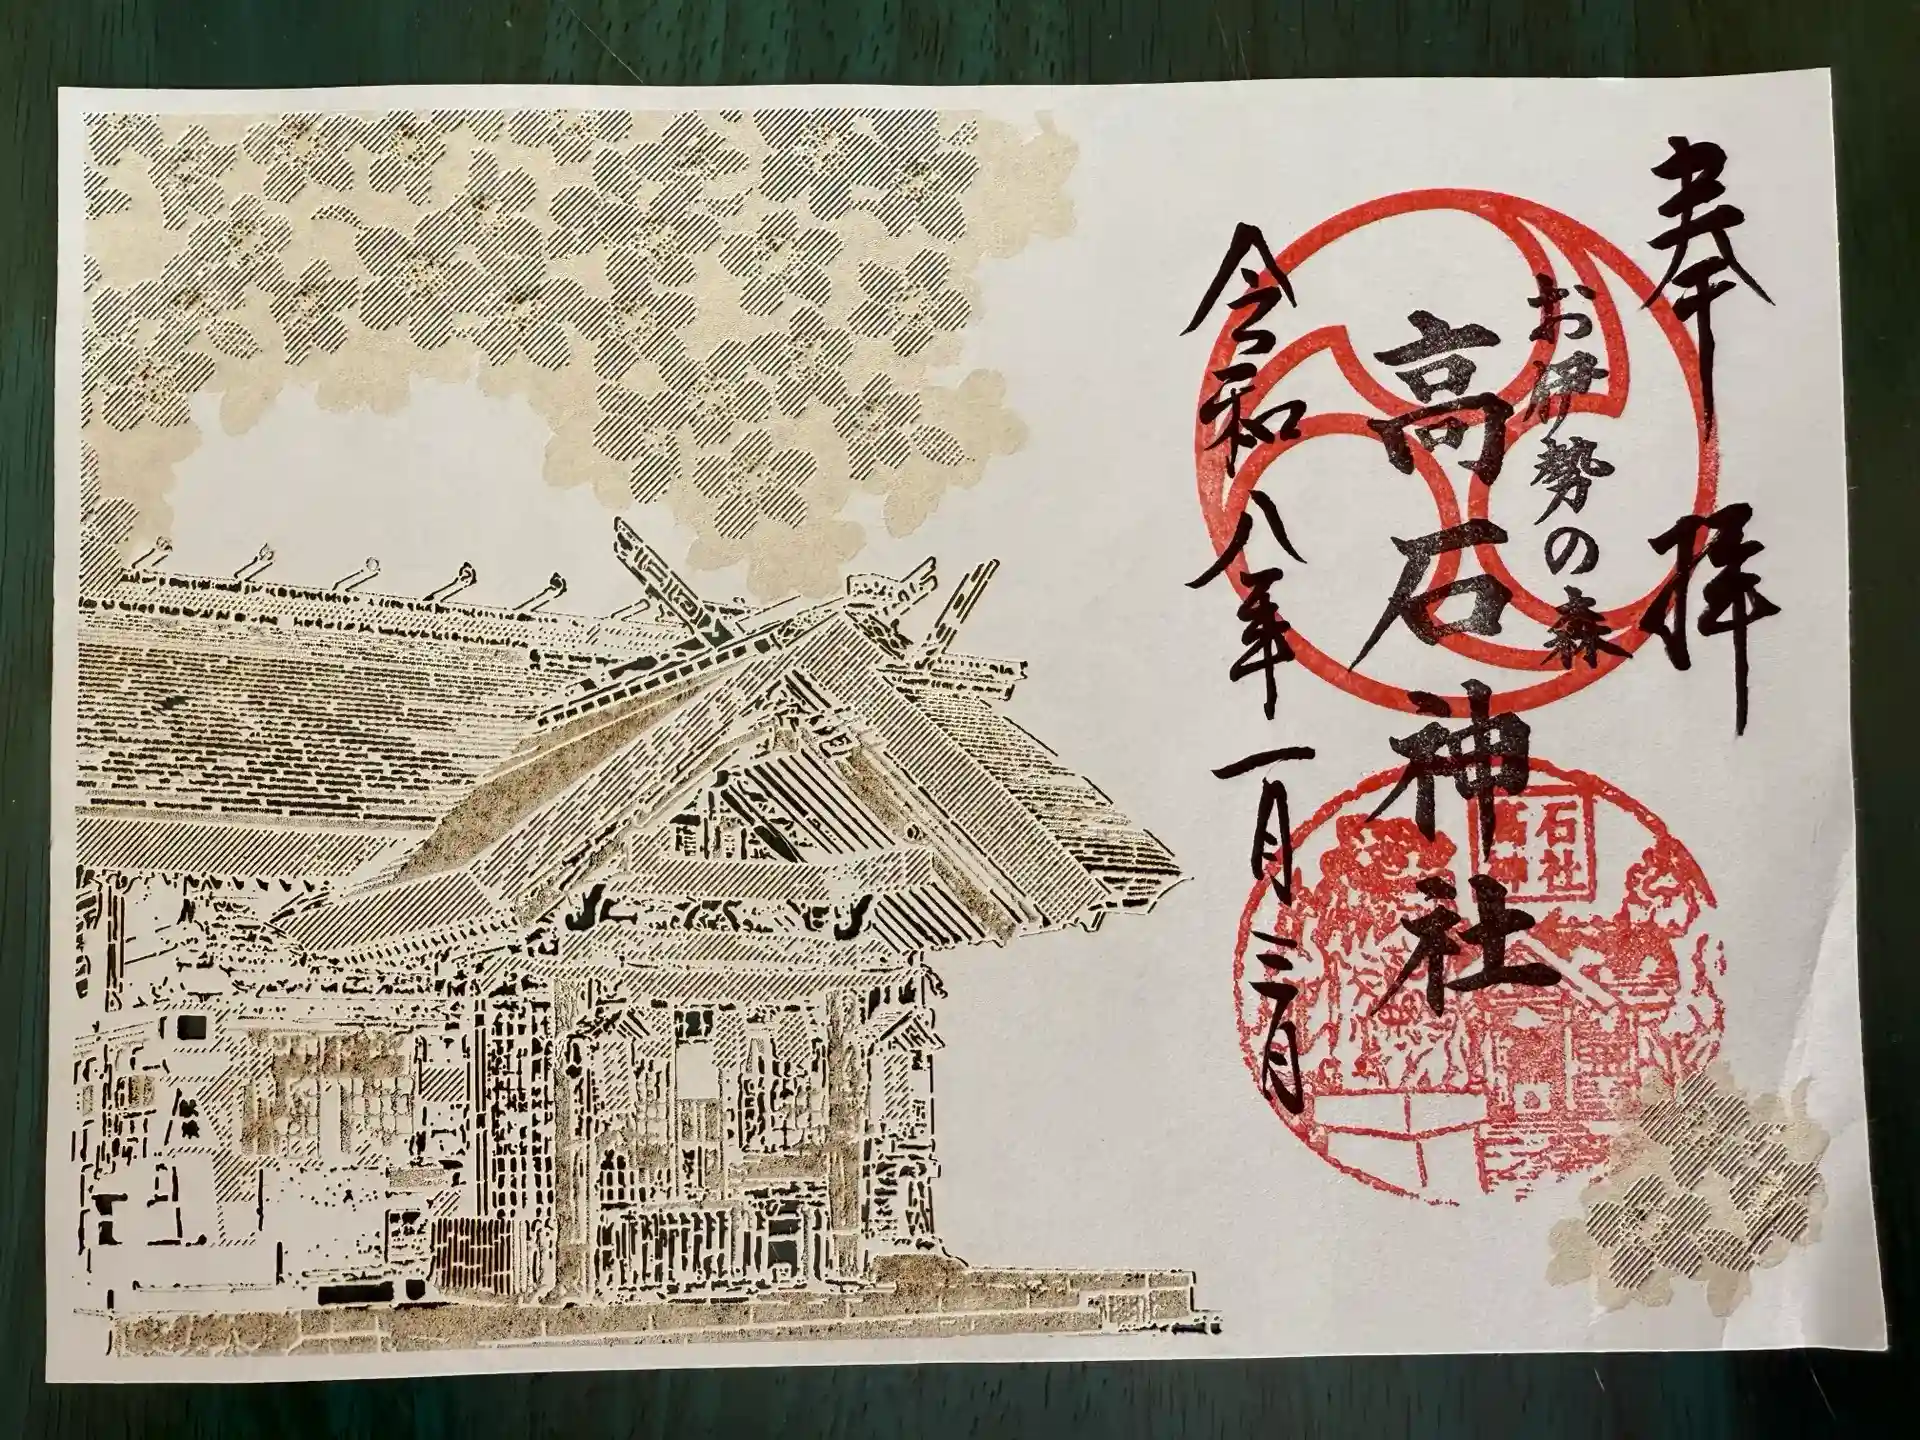 奉拝
お伊勢の森
高石神社
令和八年一月二日
高石
神社